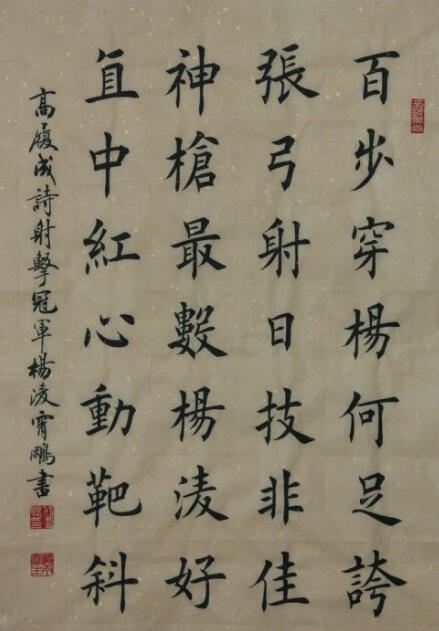 百步穿楊何足誇
張弓射日技非佳
神槍最數楊淩好
直中紅心動靶斜
高履成詩射擊冠軍楊淩霄鵬書